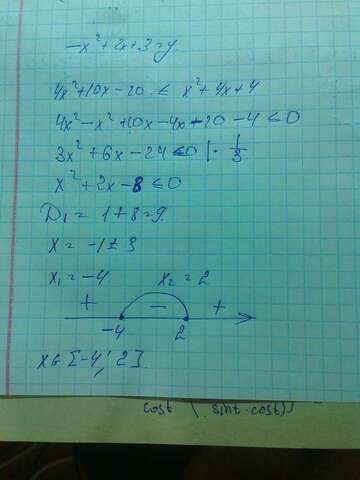 -x²+2x+3=y.
4x²+10x-20 ≤ x²+4x+4
4x²-x²+10x-4x-20-4≤0
3x²+6x-24≤0 |· 1/3.
x²+2x-8≤0
D₁= 1+8=9
x= -1±3
x₁=-4 x₂=2
+ - +
-4 2
x∈[-4; 2].
cost ( sint·cost)